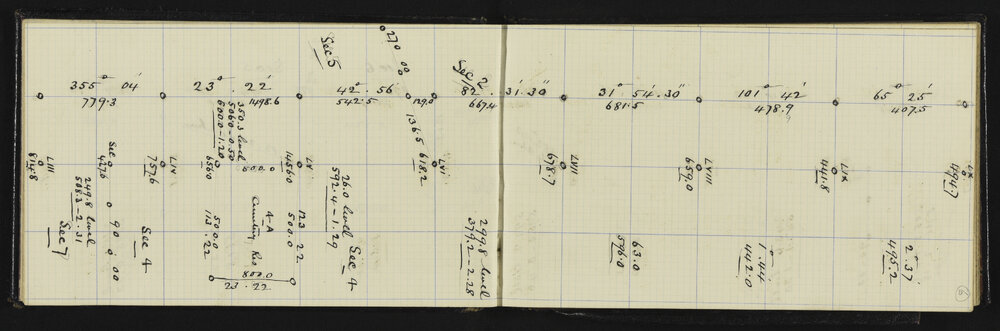 270 00
Sec 5
Sec 2
355° 04'
779.3
23° . 22'
1498.6
42° . 56'
542.5
129.0
82° . 31'.30"
667.4
31° 54'.30"
681.5
101° 42'
478.9
65° 25'
407.5
350.3 level
506.0 - 0.50
800.0 - 1.20
136.5
LIII
814.8
Sec
427.6
LIV
757.6
656.0
800.0
LV
1456.0
LVI
618.2
LVII
678.7
LVIII
659.0
LIX
441.8
LX
494.7
249.8 level
508.3 - 2.31
Sec 7
0 90 0 00
Sec 4
500.0
113 . 22
4-A
Country Res
123 22
500.0
26.0 level
592.4 - 1.29
Sec 4
299.8 level
379.2 - 2.28
63.0
596.0
1°.44
442.0
2°.37'
495.2
800.0
23 . 22